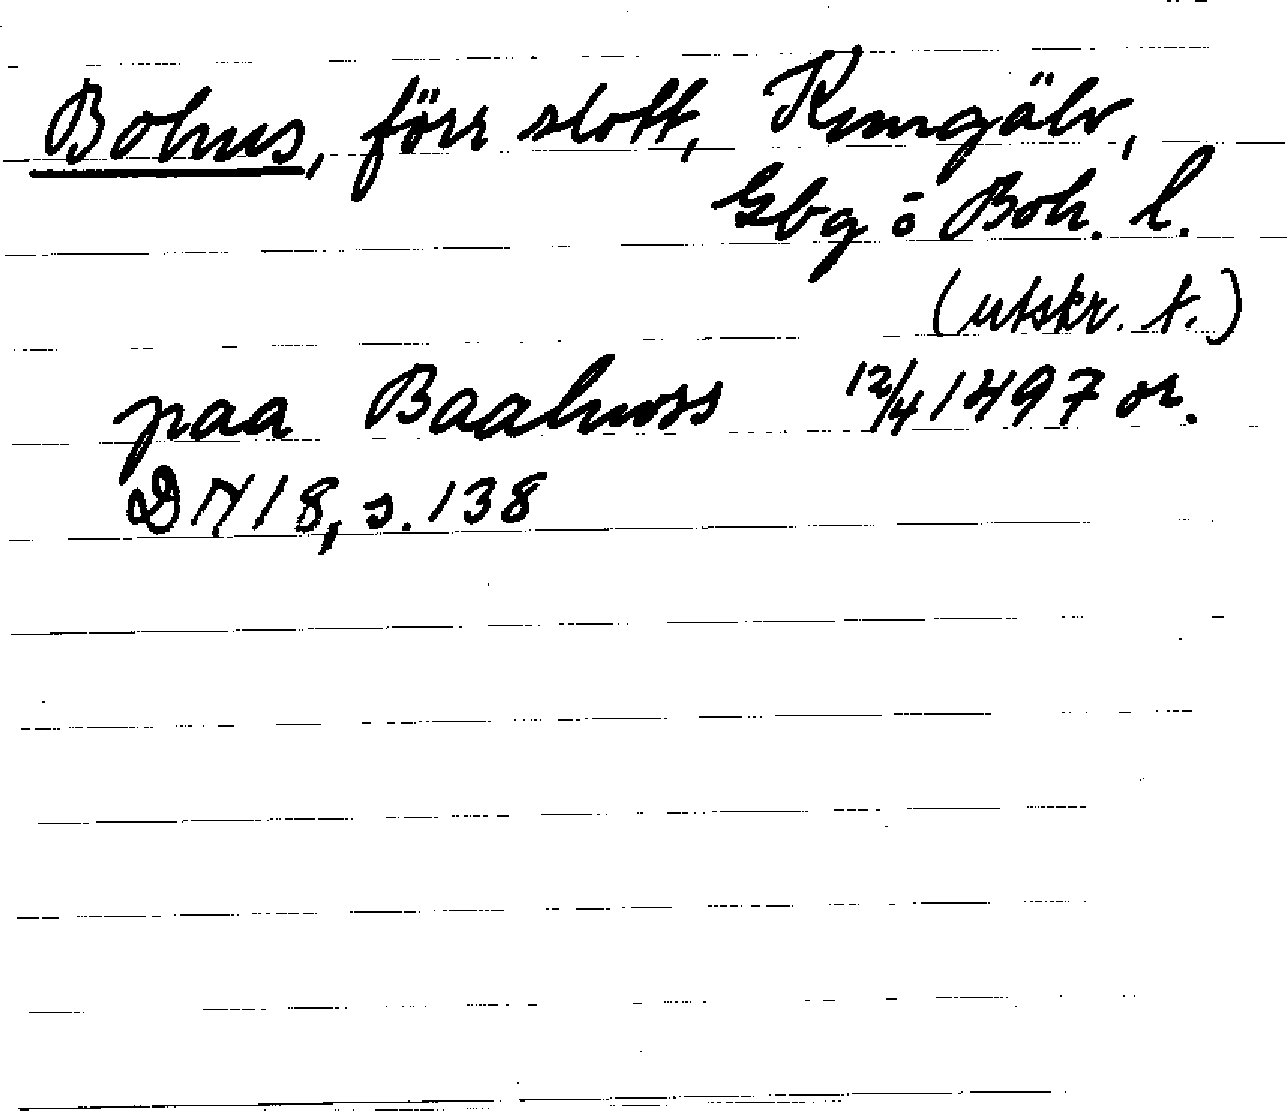 Bohus, förr slott, Kungälv,
Gbg o Boh. l.
(utskr. t.)
paa Baahwss 12/4 1497 or.
DN 18, s. 138